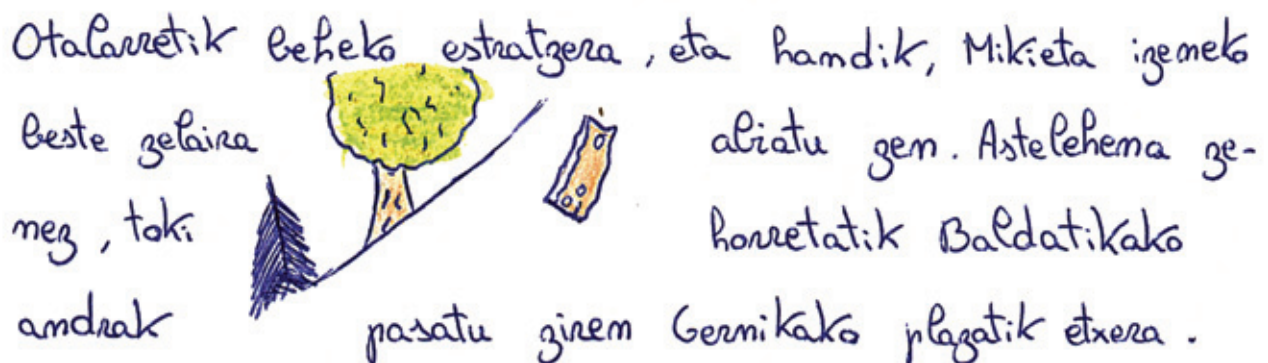 Otalarretik beheko estratzera, eta handik, Mikieta izeneko
beste zelaira abiatu zen. Astelehena ze-
nez, toki horretatik Baldatikako
andrak pasatu ziren Gernikako plazatik etxera.